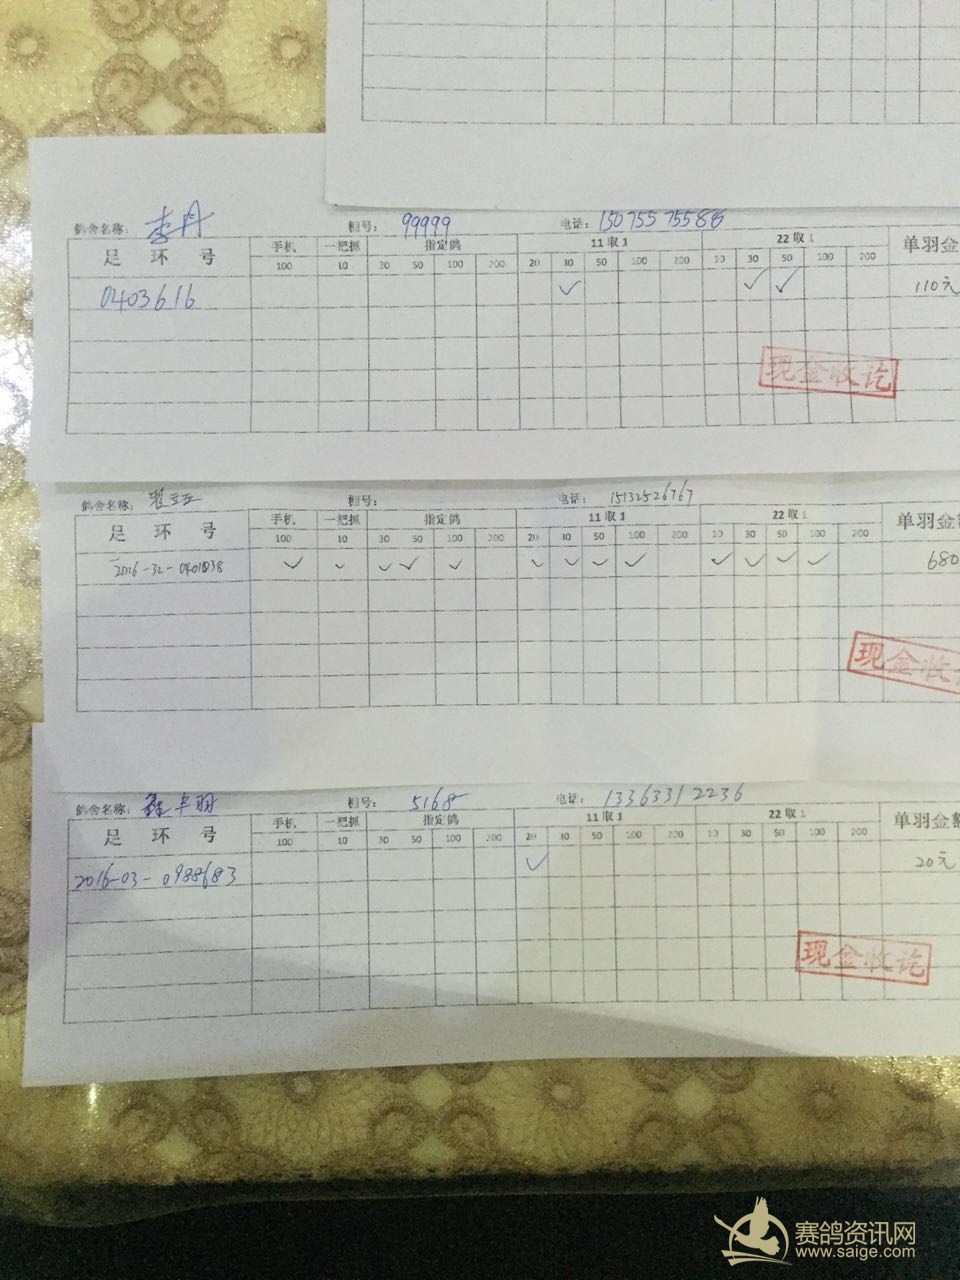 鸽舍名称： 李丹 棚号： 99999 电话： 15075575588
足 环 号 手机 一把抓 指定鸽 11取1 22取1 单羽金
100 10 30 50 100 200 20 30 50 100 200 10 30 50 100 200
0403616 ✓ ✓ ✓ 110元
现金收讫
鸽舍名称： 棚号： 电话： 15132526767
足 环 号 手机 一把抓 指定鸽 11取1 22取1 单羽金额
100 10 30 50 100 200 20 30 50 100 200 10 30 50 100 200
2016-32-0401038 ✓ ✓ ✓ ✓ ✓ ✓ ✓ ✓ ✓ ✓ ✓ ✓ ✓ 680
现金收讫
鸽舍名称： 棚号： 5168 电话： 13363312236
足 环 号 手机 一把抓 指定鸽 11取1 22取1 单羽金额
100 10 30 50 100 200 20 30 50 100 200 10 30 50 100 200
2016-03-0988683 ✓ 20元
现金收讫
赛鸽资讯网
www.saige.com